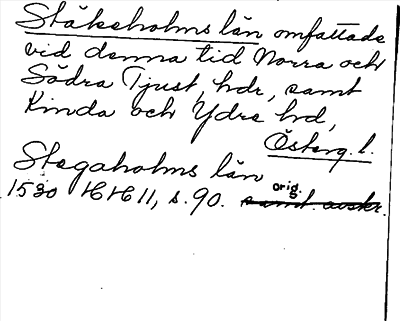 Stäkeholms län omfattade
vid denna tid Norra och
Södra Tjust, hdr, samt
Kinda och Ydre hd,
Österg. l.
Stegaholms län
orig.
1530 HH 11, s. 90. samt avskr.